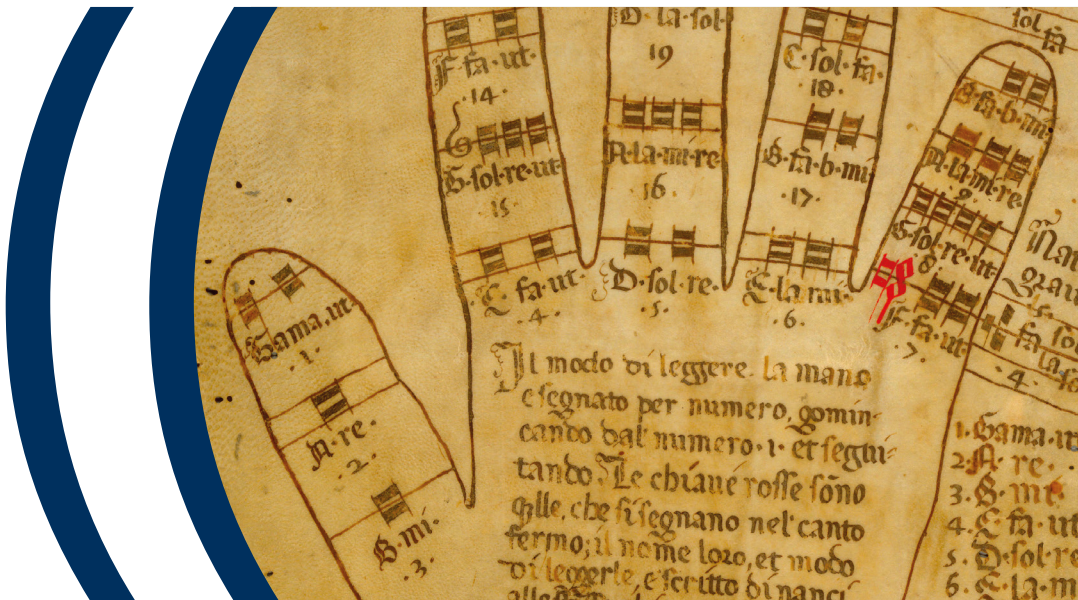 F·fa·ut·
·14·
G·sol·re·ut·
·15·
C·fa·ut·
·4·
D·la·sol·
19
A·la·mi·re
·16·
D·sol·re·
·5·
C·sol·fa·
·18·
B·fa·b·mi
·17·
E·la·mi·
·6·
B·fa·b·mi·
A·la·mi·re·
·9·
G·sol·re·ut·
8·
F·fa·ut·
·7·
sol
fa
Gama·ut
·1·
A·re·
·2·
B·mi·
·3·
Il modo di leggere la mano
e segnato per numero, gomin-
cando dal numero·1· et segui-
tando Le chiaue rosse sono
qlle, che si segnano nel canto
fermo; il nome loro, et modo
di leggerle, e scritto dinanci
fa sol
·4·
1. Gama·ut
2. A·re·
3. B·mi·
4. C·fa·ut
5. D·sol·re
6. E·la·m